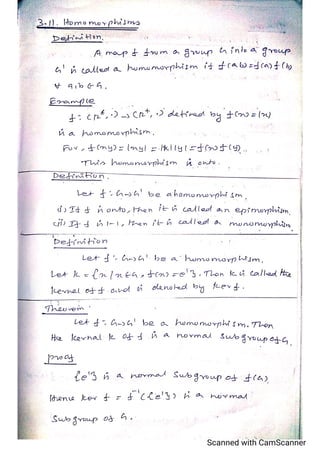 3.11. Homomorphisms
Definition.
A map f from a group G into a group
G' is called a homomorphism if f(ab)=f(a)f(b)
∀ a,b ∈ G.
Example
f: (R*, ·) → (R+, ·) defined by f(x)=|x|
is a homomorphism.
For, f(xy)=|xy|=|x||y|=f(x)f(y).
This homomorphism is onto.
Definition.
Let f: G→G' be a homomorphism.
(i) If f is onto, then it is called an epimorphism.
(ii) If f is 1-1, then it is called a monomorphism
Definition
Let f: G→G' be a homomorphism.
Let K = {x/x∈G, f(x)=e'}. Then K is called the
kernel of f and is denoted by ker f.
Theorem
Let f: G→G' be a homomorphism. Then
the kernal K of f is a normal subgroup of G.
proof
{e'} is a normal subgroup of f(G).
Hence ker f = f⁻¹({e'}) is a normal
subgroup of G.
Scanned with CamScanner